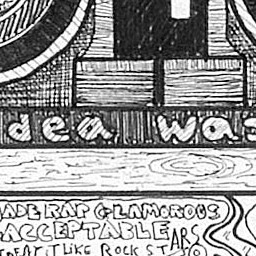 dea was
ADE RAP GLAMOROUS
ACCEPTABLE
TREAT IT LIKE ROCK STARS